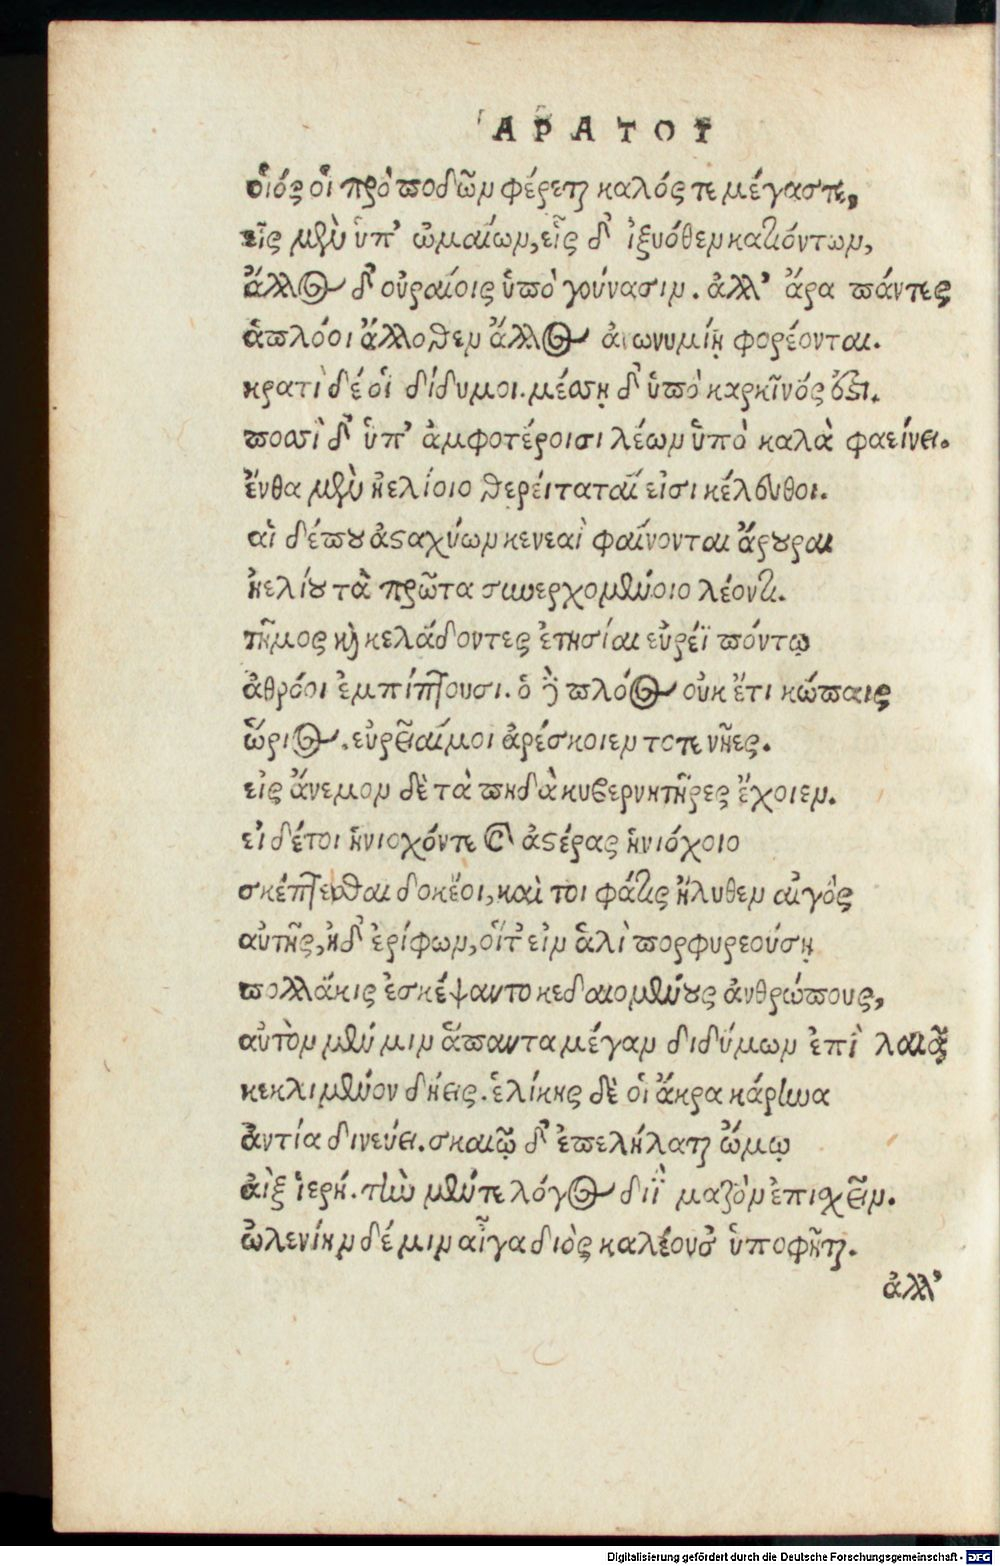 ἈΡΑΤΟΥ
οἷός οἱ πρὸ ποδῶν φέρεται καλός τε μέγας τε,
εἷς μὲν ὑπ' ὠμαίων, εἷς δ' ἰξυόθεν κατιόντων,
ἄλλος δ' οὐραίοις ὑπὸ γούνασιν. ἀλλ' ἄρα πάντες
ἁπλόοι ἄλλοθεν ἄλλος ἀνωνυμίῃ φορέονται.
κρατὶ δέ οἱ δίδυμοι. μέσσῃ δ' ὑπὸ καρκῖνός ἐστι.
ποσσὶ δ' ὑπ' ἀμφοτέροισι λέων ὑπὸ καλὰ φαείνει.
ἔνθα μὲν ἠελίοιο θερείταταί εἰσι κέλευθοι.
αἱ δέ που ἀσταχύων κενεαὶ φαίνονται ἄρουραι
ἠελίου τὰ πρῶτα συνερχομένοιο λέοντι.
τῆμος καὶ κελάδοντες ἐτησίαι εὐρέϊ πόντῳ
ἀθρόοι ἐμπίπτουσι. ὁ δὲ πλόος οὐκ ἔτι κώπαις
ὥριος. εὐρεῖαί μοι ἀρέσκοιεν τοτε νῆες.
εἰς ἄνεμον δὲ τὰ πηδὰ κυβερνητῆρες ἔχοιεν.
εἰ δέ τοι ἡνιοχόν τε καὶ ἀστέρας ἡνιόχοιο
σκέπτεσθαι δοκέοι, καὶ τοι φάτις ἤλυθεν αἰγὸς
αὐτῆς, ἠδ' ἐρίφων, οἵτ' εἰν ἁλὶ πορφυρεούσῃ
πολλάκις ἐσκέψαντο κεδαιομένους ἀνθρώπους,
αὐτὸν μέν μιν ἅπαντα μέγαν διδύμων ἐπὶ λαιὰ
κεκλιμένον δήεις. ἑλίκης δὲ οἱ ἄκρα κάρηνα
ἀντία δινεύει. σκαιῷ δ' ἐπελήλαται ὤμῳ
αἲξ ἱερή. τὴν μέν τε λόγος διῒ μαζὸν ἐπισχεῖν.
ὠλενίην δέ μιν αἶγα διὸς καλέουσ' ὑποφῆται.
ἀλλ'
Digitalisierung gefördert durch die Deutsche Forschungsgemeinschaft - DFG